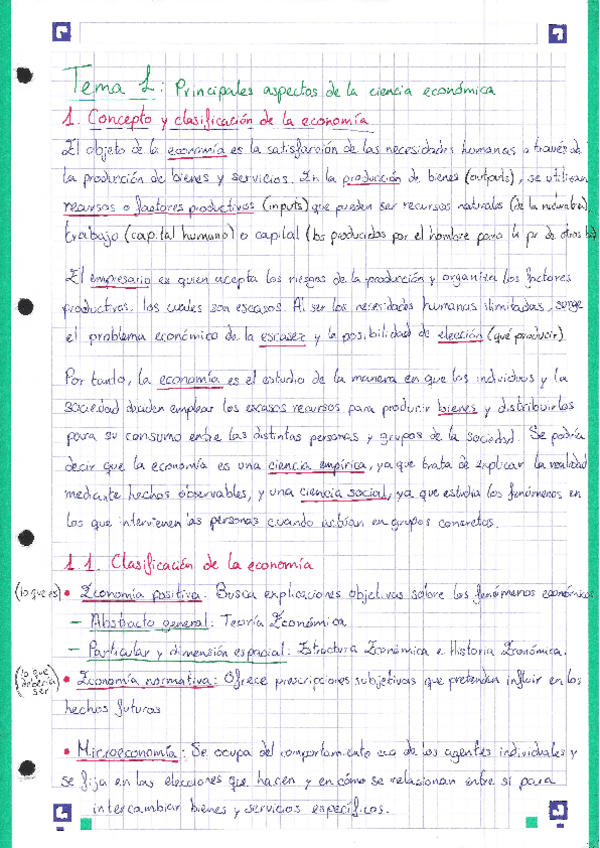 Tema 1: Principales aspectos de la ciencia económica
1. Concepto y clasificación de la economía
El objeto de la economía es la satisfacción de las necesidades humanas a través de
la producción de bienes y servicios. En la producción de bienes (outputs), se utilizan
recursos o factores productivos (inputs) que pueden ser recursos naturales (de la naturaleza),
trabajo (capital humano) o capital (los producidos por el hombre para la pr de otros
El empresario es quien acepta los riesgos de la producción y organiza los factores
productivos, los cuales son escasos. Al ser las necesidades humanas ilimitadas, surge
el problema económico de la escasez y la posibilidad de elección (qué producir).
Por tanto, la economía es el estudio de la manera en que los individuos y la
sociedad deciden emplear los escasos recursos para producir bienes y distribuirlos
para su consumo entre las distintas personas y grupos de la sociedad. Se podría
decir que la economía es una ciencia empírica, ya que trata de explicar la realidad
mediante hechos observables, y una ciencia social, ya que estudia los fenómenos en
los que intervienen las personas cuando actúan en grupos concretos.
1.1. Clasificación de la economía
(lo que es) • Economía positiva: Busca explicaciones objetivas sobre los fenómenos económicos
– Abstracto general: Teoría Económica.
– Particular y dimensión espacial: Estructura Económica e Historia Económica.
(lo que debería ser) • Economía normativa: Ofrece prescripciones subjetivas que pretenden influir en los
hechos futuros
• Microeconomía: Se ocupa del comportamiento eco de los agentes individuales y
se fija en las elecciones que hacen y en cómo se relacionan entre sí para
intercambiar bienes y servicios específicos.